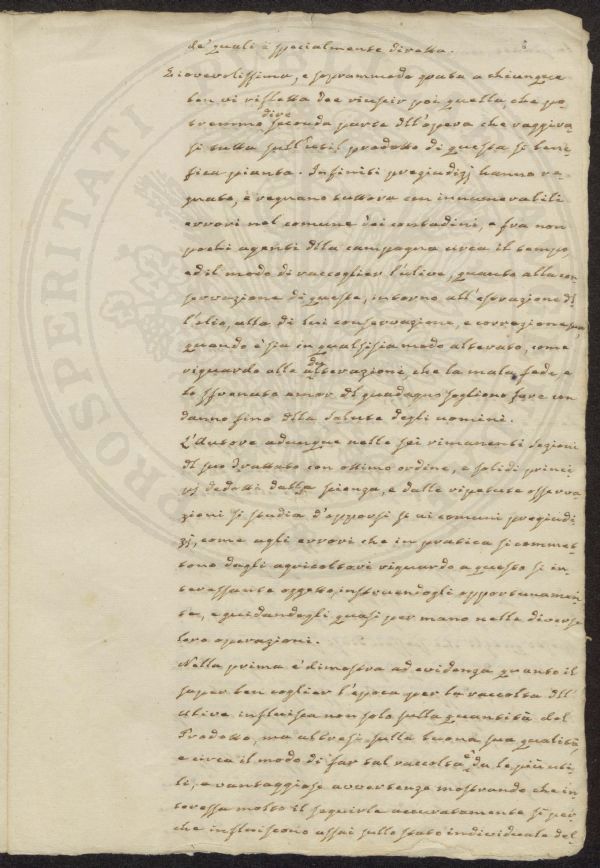 de' quali è specialmente diretta.
Giovevolissima, e soprammodo grata a chiunque
ben vi rifletta dee riuscir poi quella, che po-
tremmo dire seconda parte dell'opera che raggira-
si tutta sull'util prodotto di questa sì bene-
fica pianta. Infiniti pregiudizj hanno re-
gnato, e regnano tuttora con innumerabili
errori nel comune dei contadini, e fra non
pochi agenti della campagna circa il tempo,
ed il modo di raccoglier l'ulive, quanto alla con-
servazione di queste, intorno all'estrazione del
l'olio, alla di lui conservazione, e correzione
quando e' sia in qualsisia modo alterato, come
riguardo alle adulterazioni che la mala fede, e
lo sfrenato amor del guadagno sogliono fare con
danno fino della salute degli uomini.
L'Autore adunque nelle sei rimanenti Sezioni
del suo Trattato con ottimo ordine, e solidi princi-
pj dedotti dalla scienza, e dalle ripetute osserva-
zioni si studia d'opporsi sì ai comuni pregiudi-
zj, come agli errori che in pratica si commet-
tono dagli agricoltori riguardo a questo sì in-
teressante oggetto, instruendogli opportunamen-
te, e guidandogli quasi per mano nelle diverse
loro operazioni.
Nella prima e' dimostra ad evidenza quanto il
saper ben coglier l'epoca per la raccolta dell'
Ulive influisca non solo sulla quantità del
Prodotto, ma altresì sulla buona sua qualità
e circa il modo di far tal raccolta e' dà le più uti-
li, e vantaggiose avvertenze mostrando che in-
teressa molto il seguirle accuratamente sì per
che influiscono assai sullo stato individuale del
PROSPERITATI PUBLICAE